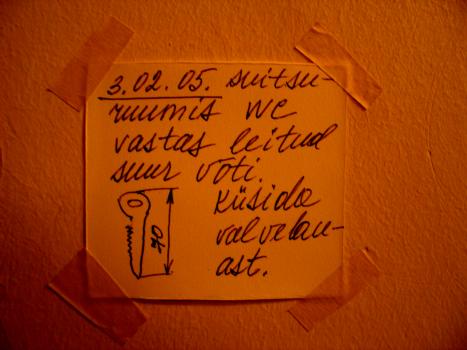 3.02.05. suitsu-
ruumis WC
vastas leitud
suur võti.
Küsida
valvelau-
ast.